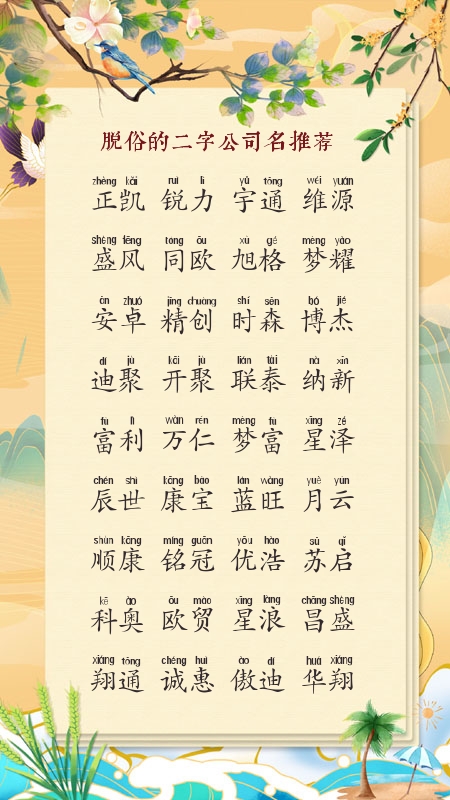 脱俗的二字公司名推荐
zhèng kǎi ruì lì yǔ tōng wéi yuán
正凯 锐力 宇通 维源
shèng fēng tóng ōu xù gé mèng yào
盛风 同欧 旭格 梦耀
ān zhuó jīng chuàng shí sēn bó jié
安卓 精创 时森 博杰
dí jù kāi jù lián tài nà xīn
迪聚 开聚 联泰 纳新
fù lì wàn rén mèng fù xīng zé
富利 万仁 梦富 星泽
chén shì kāng bǎo lán wàng yuè yún
辰世 康宝 蓝旺 月云
shùn kāng míng guān yōu hào sū qǐ
顺康 铭冠 优浩 苏启
kē ào ōu mào xīng làng chāng shèng
科奥 欧贸 星浪 昌盛
xiáng tōng chéng huì ào dí huá xiáng
翔通 诚惠 傲迪 华翔